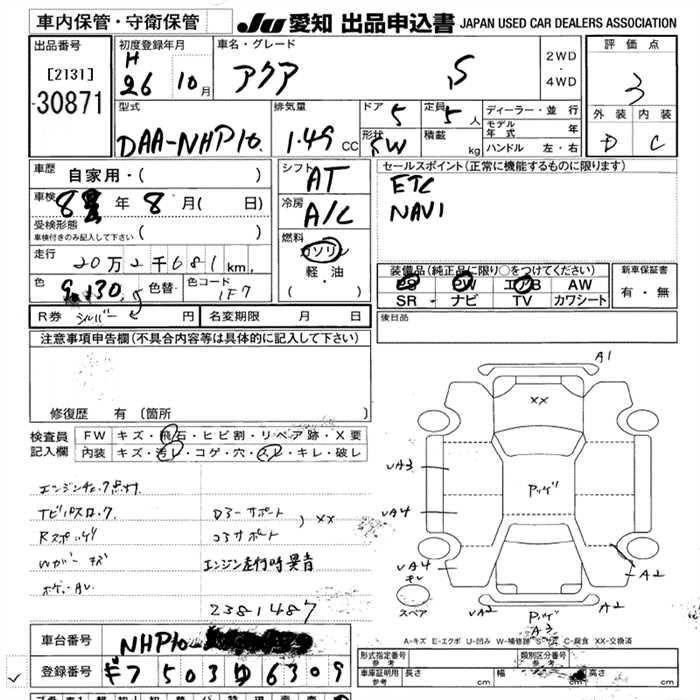 車内保管・守衛保管
JU 愛知 出品申込書 JAPAN USED CAR DEALERS ASSOCIATION
出品番号
[2131]
30871
初度登録年月
H
26 10月
車名・グレード
アクア S
2WD
・
4WD
評価点
3
外装 内装
D C
型式
DAA-NHP10.
排気量
1.49 CC
ドア 5
定員 5人
形状 SW
積載 kg
ディーラー・並行
モデル年式 年
ハンドル 左・右
車歴
自家用・( )
車検
8 年 8月( 日)
受検形態
車検付きのみ記入して下さい ( )
走行
20万2千681km,
色 色替 色コード
1F7
シルバー
R券 円 名変期限 月 日
シフト
AT
冷房
A/C
燃料
ガソリン
軽・油
( )
セールスポイント(正常に機能するものに限ります)
ETC
NAVI
装備品(純正品に限り○をつけてください)
PS PW エアB AW
SR ナビ TV カワシート
新車保証書
有・無
後日品
注意事項申告欄(不具合内容等は具体的に記入して下さい)
修復歴 有(箇所
検査員
記入欄
FW キズ・飛石・ヒビ割・リペア跡・X要
内装 キズ・汚レ・コゲ・穴・スレ・キレ・破レ
エンジンチェック点灯
D3ーサポート
コアサポート
XX
エンジン走行時異音
2381487
A1
XX
UA3
UA4
UA4
A2
UA2
A3
スペア
A-キズ E-エクボ U-凹み W-補修跡 S-サビ C-腐食 XX-交換済
車台番号 NHP10-
登録番号 503 ゆ 6309
形式指定番号
参考
類別区分番号
参考
車庫証明用
参考
長さ cm 幅 cm 高さ cm